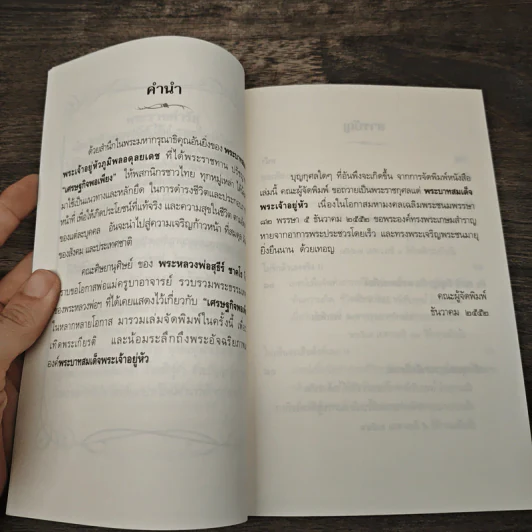 คำนำ
ด้วยสำนึกในพระมหากรุณาธิคุณอันยิ่งของ
พระเจ้าอยู่หัวภูมิพลอดุลยเดช ที่ได้พระราชทาน
"เศรษฐกิจพอเพียง" ให้พสกนิกรชาวไทย ทุกหมู่เหล่า ได้
มาใช้เป็นแนวทางและหลักยึด ในการดำรงชีวิตและประกอบ
หน้าที่ เพื่อให้เกิดประโยชน์ที่แท้จริง และความสุขในชีวิต
ของแต่ละบุคคล อันจะนำไปสู่ความเจริญก้าวหน้า ที่สมดุล
ของสังคม และประเทศชาติ
คณะศิษยานุศิษย์ ของ พระหลวงพ่อสุธีร์
กราบขอโอกาสพ่อแม่ครูบาอาจารย์ รวบรวมพระธรรม
ของพระหลวงพ่อฯ ที่ได้เคยแสดงไว้เกี่ยวกับ "เศรษฐกิจพอเพียง"
ในหลากหลายโอกาส มารวมเล่มจัดพิมพ์ในครั้งนี้ เพื่อ
เทิดพระเกียรติ และน้อมระลึกถึงพระอัจฉริยภาพ
องค์พระบาทสมเด็จพระเจ้าอยู่หัว
บุญกุศลใดๆ ที่อันพึงจะเกิดขึ้น จากการจัดพิมพ์หนังสือ
เล่มนี้ คณะผู้จัดพิมพ์ ขอถวายเป็นพระราชกุศลแด่ พระบาทสมเด็จ
พระเจ้าอยู่หัว เนื่องในโอกาสมหามงคลเฉลิมพระชนมพรรษา
๘๒ พรรษา ๕ ธันวาคม ๒๕๕๒ ขอพระองค์ทรงพระเกษมสำราญ
หายจากอาการพระประชวรโดยเร็ว และทรงพระเจริญพระชนมายุ
ยิ่งยืนนาน ด้วยเทอญ
คณะผู้จัดพิมพ์
ธันวาคม ๒๕๕๒